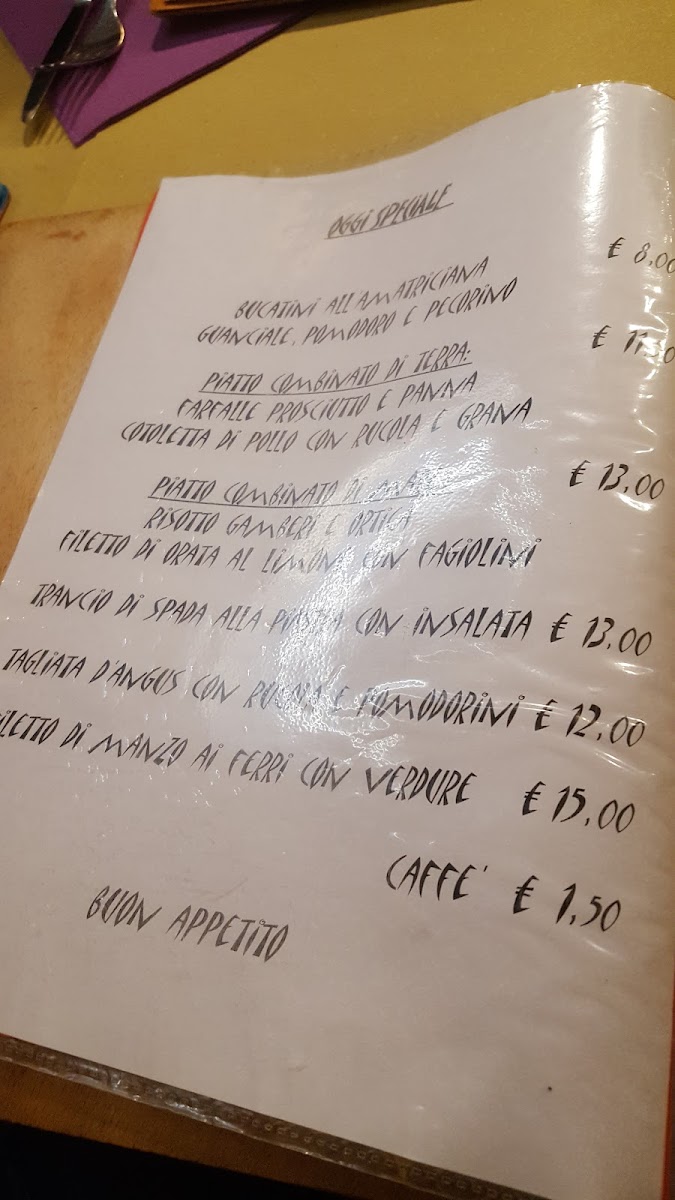 OGGI SPECIALE
€ 8,00
BUCATINI ALL'AMATRICIANA
GUANCIALE, POMODORO E PECORINO
PIATTO COMBINATO DI TERRA:
FARFALLE PROSCIUTTO E PANNA
COTOLETTA DI POLLO CON RUCOLA E GRANA
€ 13,00
PIATTO COMBINATO DI
RISOTTO GAMBERI E ORTICA
FILETTO DI ORATA AL LIMONE CON FAGIOLINI
TRANCIO DI SPADA ALLA PIASTRA CON INSALATA € 13,00
TAGLIATA D'ANGUS CON RUCOLA E POMODORINI € 12,00
FILETTO DI MANZO AI FERRI CON VERDURE € 15,00
CAFFE' € 1,50
BUON APPETITO